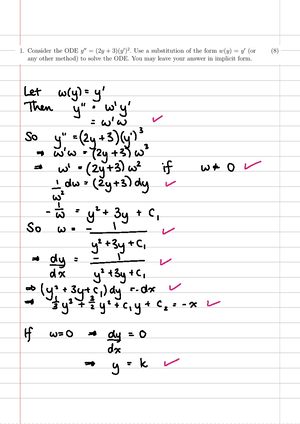 1. Consider the ODE y'' = (2y + 3)(y')³. Use a substitution of the form w(y) = y' (or (8)
any other method) to solve the ODE. You may leave your answer in implicit form.
Let w(y) = y'
Then y'' = w'y'
= w'w
So y'' = (2y+3)(y')³
⇒ w'w = (2y+3) w³
⇒ w' = (2y+3) w² if w ≠ 0
1/w² dw = (2y+3) dy
- 1/w = y² + 3y + C₁
So w = - 1/(y² + 3y + C₁)
⇒ dy/dx = - 1/(y² + 3y + C₁)
⇒ (y² + 3y + C₁) dy = - dx
⇒ 1/3 y³ + 3/2 y² + C₁y + C₂ = - x
If w=0 ⇒ dy/dx = 0
⇒ y = k